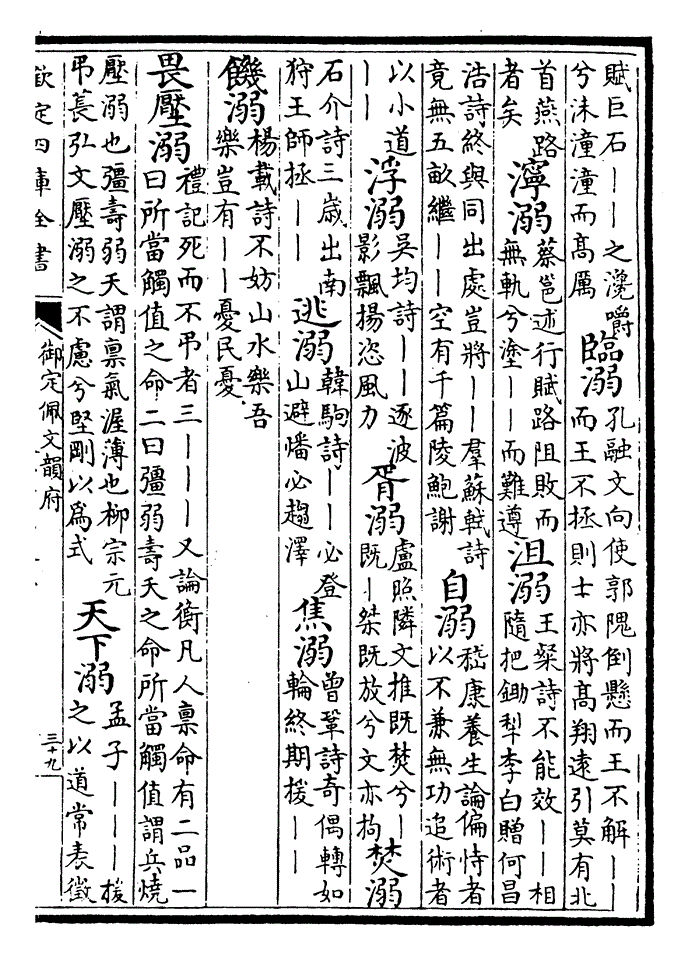 賦巨石丨丨之瀺嚼
兮沬潼潼而髙厲
臨溺
孔融文向使郭隗倒懸而王不解丨丨
而王不拯則士亦將髙翔遠引莫有北
首燕路
者矣
濘溺
蔡邕述行賦路阻敗而
無軌兮塗丨丨而難遵
沮溺
王粲詩不能效丨丨相
隨把鋤犁李白贈何昌
浩詩終與同出處豈將丨丨羣蘇軾詩
竟無五畝繼丨丨空有千篇陵鮑謝
自溺
嵇康養生論偏恃者
以不兼無功追術者
以小道
丨丨
浮溺
吳均詩丨丨逐波
影飄揚恣風力
胥溺
盧照隣文推既焚兮丨
既丨桀既放兮文亦拘
焚溺
石介詩三歲出南
狩王師拯丨丨
逃溺
韓駒詩丨丨必登
山避燔必趨澤
焦溺
曾鞏詩奇偶轉如
輪終期援丨丨
饑溺
楊載詩不妨山水樂吾
樂豈有丨丨憂民憂
畏壓溺
禮記死而不弔者三丨丨丨又論衡凡人稟命有二品一
曰所當觸值之命二曰彊弱壽夭之命所當觸值謂兵燒
壓溺也彊壽弱夭謂稟氣渥薄也柳宗元
弔萇弘文壓溺之不慮兮堅剛以為式
天下溺
孟子丨丨丨援
之以道常表徵
欽定四庫全書
御定佩文韻府
三十九